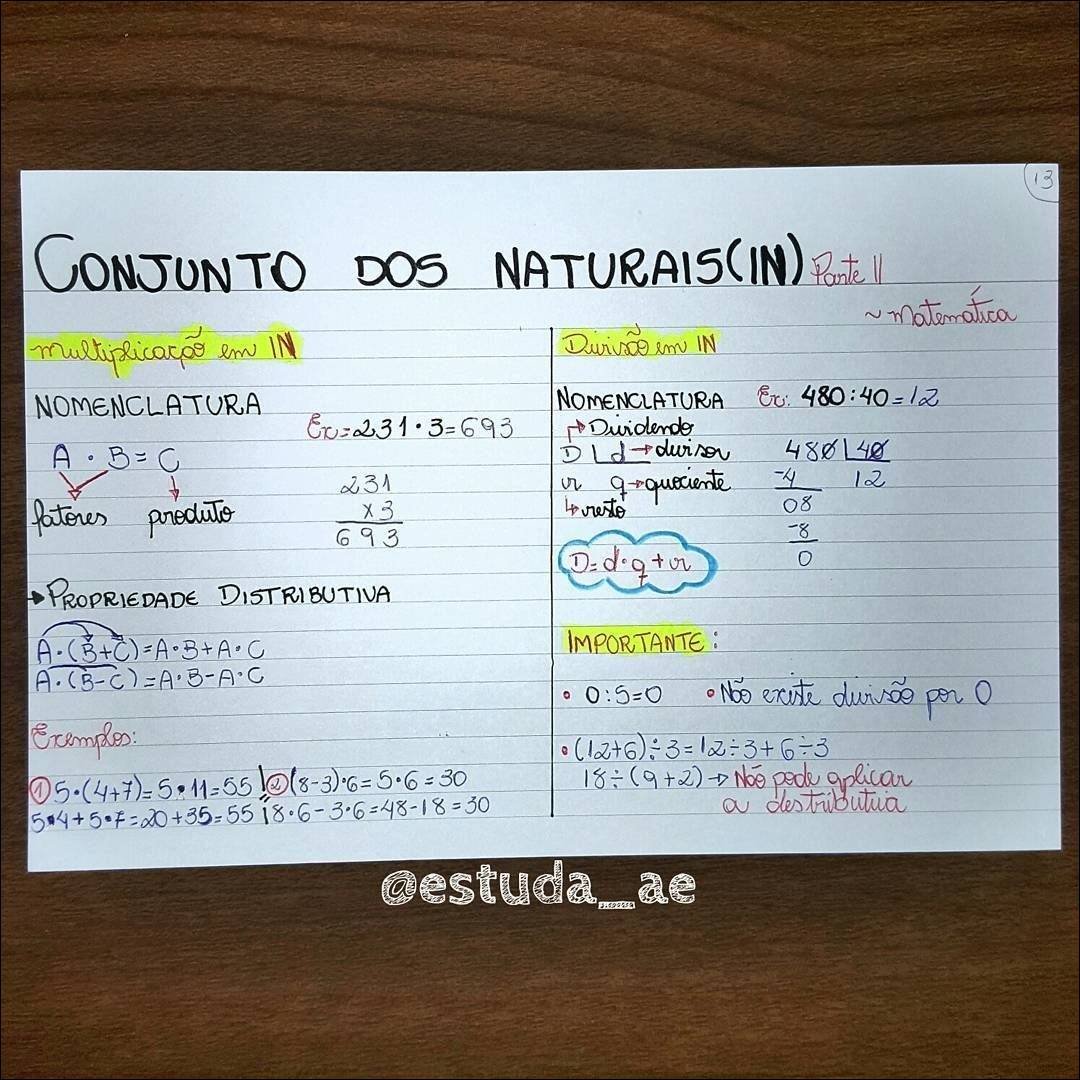 13
CONJUNTO DOS NATURAIS(IN) Parte II
~ Matemática
Multiplicação em IN
NOMENCLATURA
Ex=231·3=693
A · B = C
fatores produto
231
x3
693
→PROPRIEDADE DISTRIBUTIVA
A·(B+C)=A·B+A·C
A·(B-C)=A·B-A·C
Exemplos:
① 5·(4+7)=5·11=55
5·4+5·7=20+35=55
② (8-3)·6=5·6=30
8·6-3·6=48-18=30
Divisão em IN
NOMENCLATURA Ex: 480:40=12
→Dividendo
D d→divisor
r q→quociente
↳resto
480 40
-4 12
08
-8
0
D=d·q+r
IMPORTANTE:
• 0:5=0 • Não existe divisão por 0
• (12+6)÷3=12÷3+6÷3
18÷(9+2)→Não pode aplicar
a destributiva
@estuda_ae